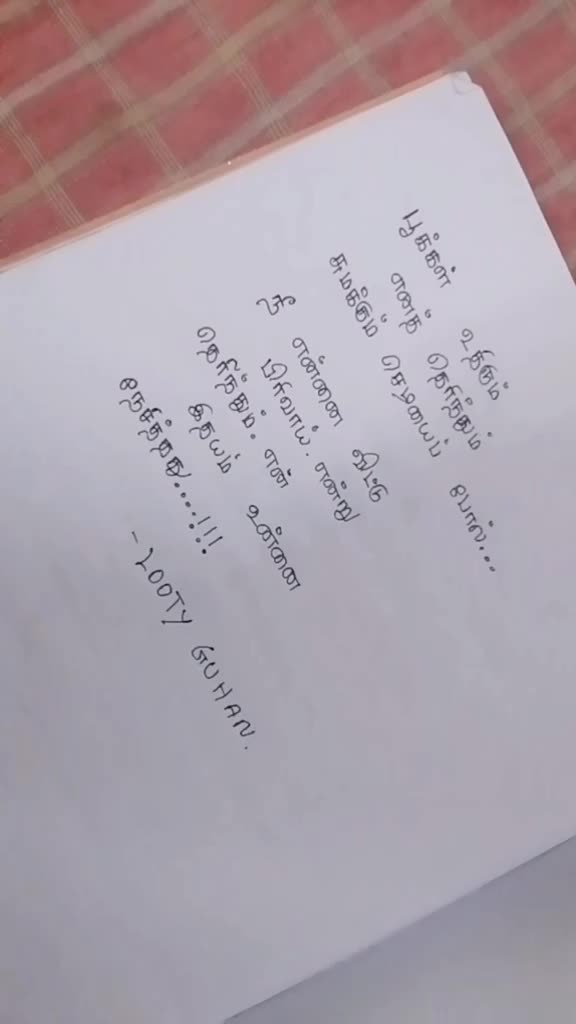 பூக்கள் உதிரும்
எனத் தெரிந்தும்
சுமக்கும் செடியைப் போல்...
நீ என்னை விட்டு
பிரிவாய். என்று
தெரிந்தும். என்
இதயம் உன்னை
நேசித்தது.....!!!
- LOOTY GUHAN.